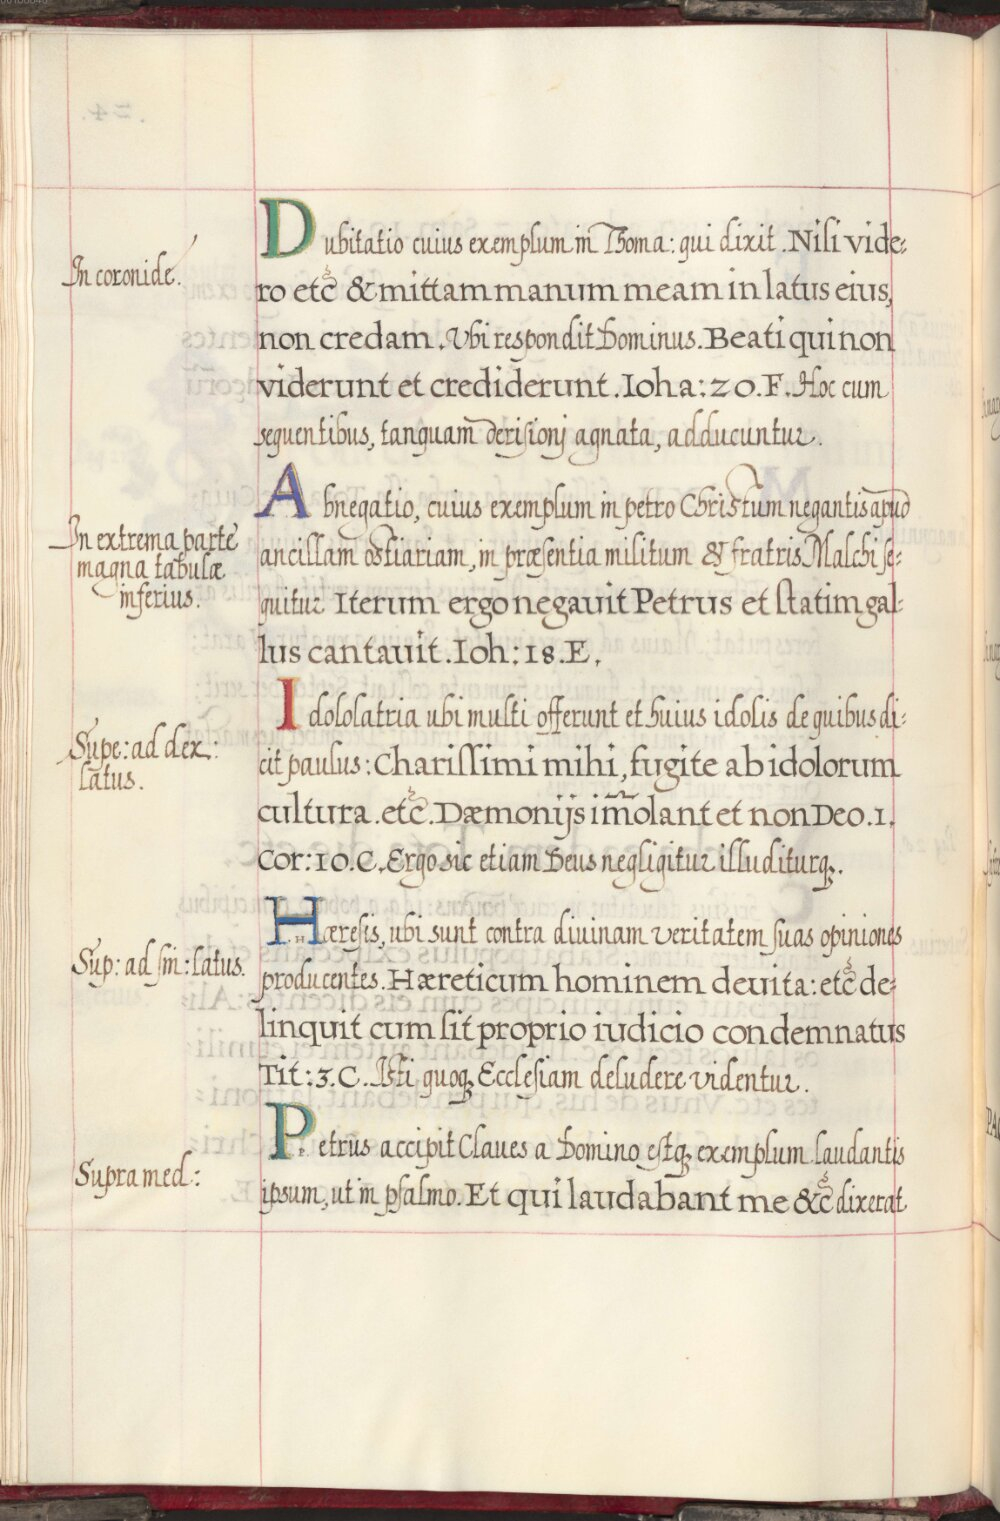 In coronide.
Dubitatio cuius exemplum in Thoma: qui dixit. Nisi vide-
ro etc̃ & mittam manum meam in latus eius,
non credam. Ubi respondit Dominus. Beati qui non
viderunt et crediderunt. Ioha: 20. F. Hoc cum
sequentibus, tanquam derisionj agnata, adducuntur.
In extrema parte
magna tabulæ
inferius.
Abnegatio, cuius exemplum in petro Christum negantis apud
ancillam ostiariam, in præsentia militum & fratris Malchi se-
quitur Iterum ergo negauit Petrus et statim gal-
lus cantauit. Ioh: 18. E.
Supe: ad dex:
latus.
Idololatria ubi multi offerunt et huius idolis de quibus di-
cit paulus: Charissimi mihi, fugite ab idolorum
cultura. etc̃. Dæmonijs im̃olant et non Deo. 1.
Cor: 10. C. Ergo sic etiam Deus negligitur illuditurq.
Sup: ad sin: latus.
Hæresis, ubi sunt contra diuinam veritatem suas opiniones
producentes. Hæreticum hominem deuita: etc̃ de-
linquit cum sit proprio iudicio condemnatus
Tit: 3. C. Isti quoq Ecclesiam deludere videntur.
Supra med:
Petrus accipit Claues a Domino estq exemplum laudantis
ipsum, ut in psalmo. Et qui laudabant me &c̃ dixerat